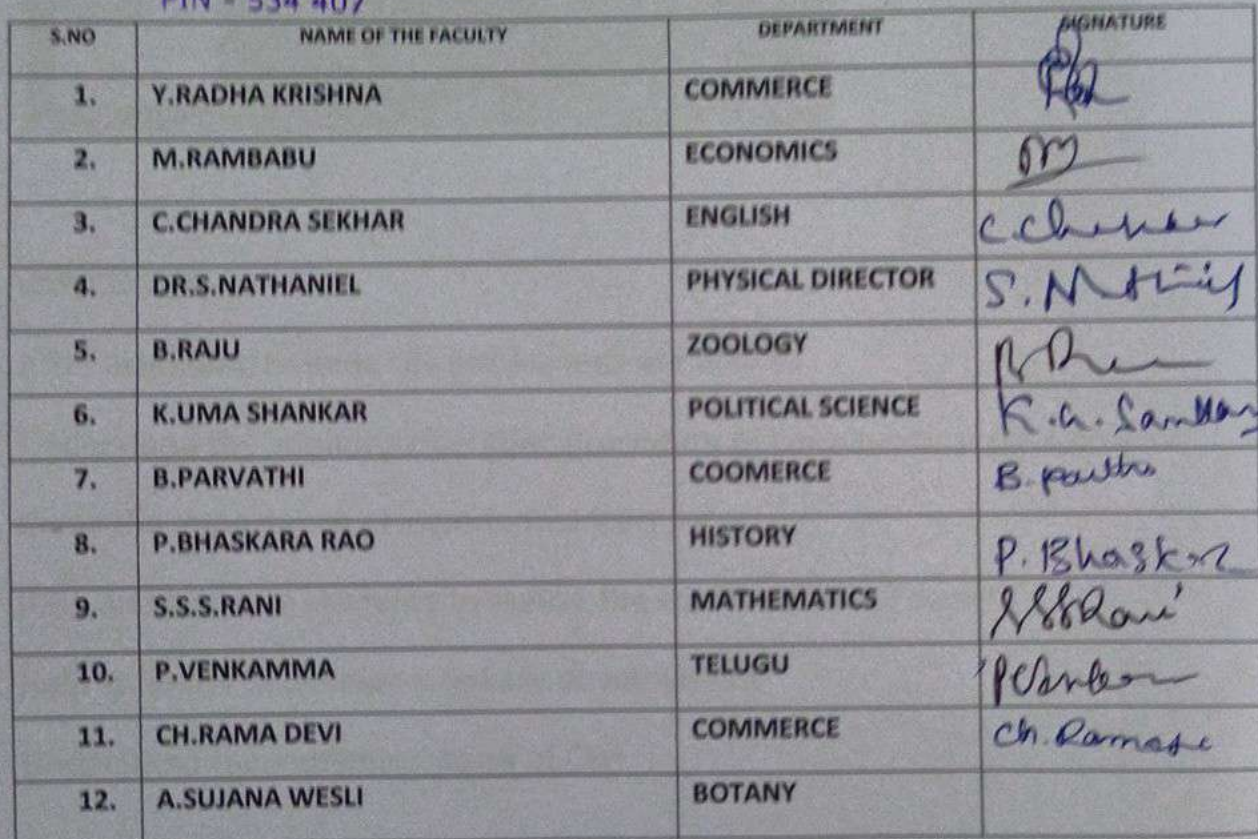 PIN - 534 407
S.NO NAME OF THE FACULTY DEPARTMENT SIGNATURE
1. Y.RADHA KRISHNA COMMERCE
2. M.RAMBABU ECONOMICS
3. C.CHANDRA SEKHAR ENGLISH
4. DR.S.NATHANIEL PHYSICAL DIRECTOR
5. B.RAJU ZOOLOGY
6. K.UMA SHANKAR POLITICAL SCIENCE
7. B.PARVATHI COOMERCE
8. P.BHASKARA RAO HISTORY P. Bhaskar
9. S.S.S.RANI MATHEMATICS SSSRani
10. P.VENKAMMA TELUGU
11. CH.RAMA DEVI COMMERCE
12. A.SUJANA WESLI BOTANY